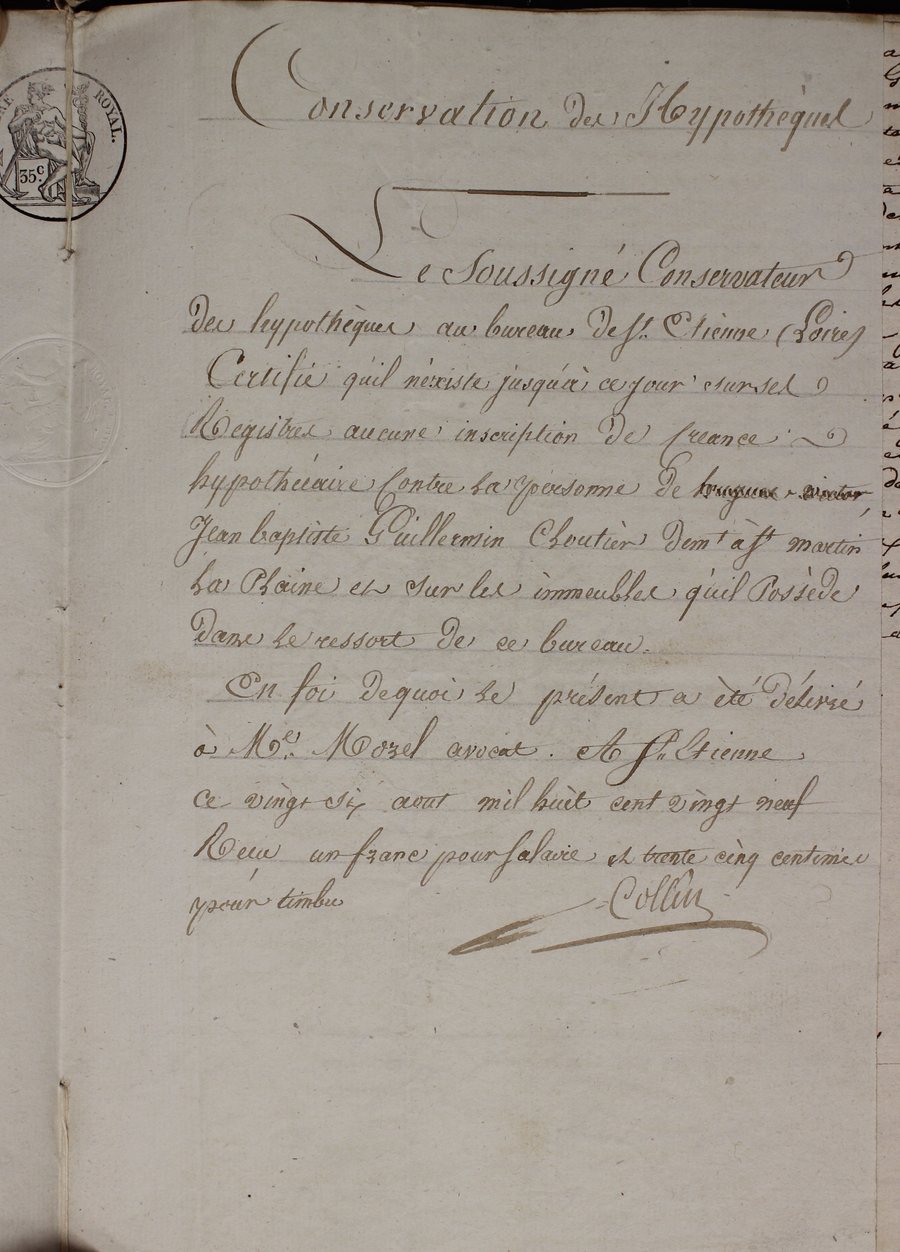 TIMBRE ROYAL.
35c.
Conservation des Hypothèques
Le Soussigné Conservateur
des hypothèques au bureau de St. Etienne (Loire)
Certifie qu'il n'éxiste jusqu'à ce jour sur ses
Registres aucune inscription de Creance
hypothécaire Contre la personne de
Jean baptiste Guillermin Cloutier demt à St martin
la Plaine et sur les immeubles qu'il Possède
dans le ressort de ce bureau.
En foi de quoi le présent a été délivré
à Me. Mozel avocat. A St. Etienne
ce vingt six aout mil huit cent vingt neuf
Recu un franc pour salaire et trente cinq centimes
pour timbre Collin